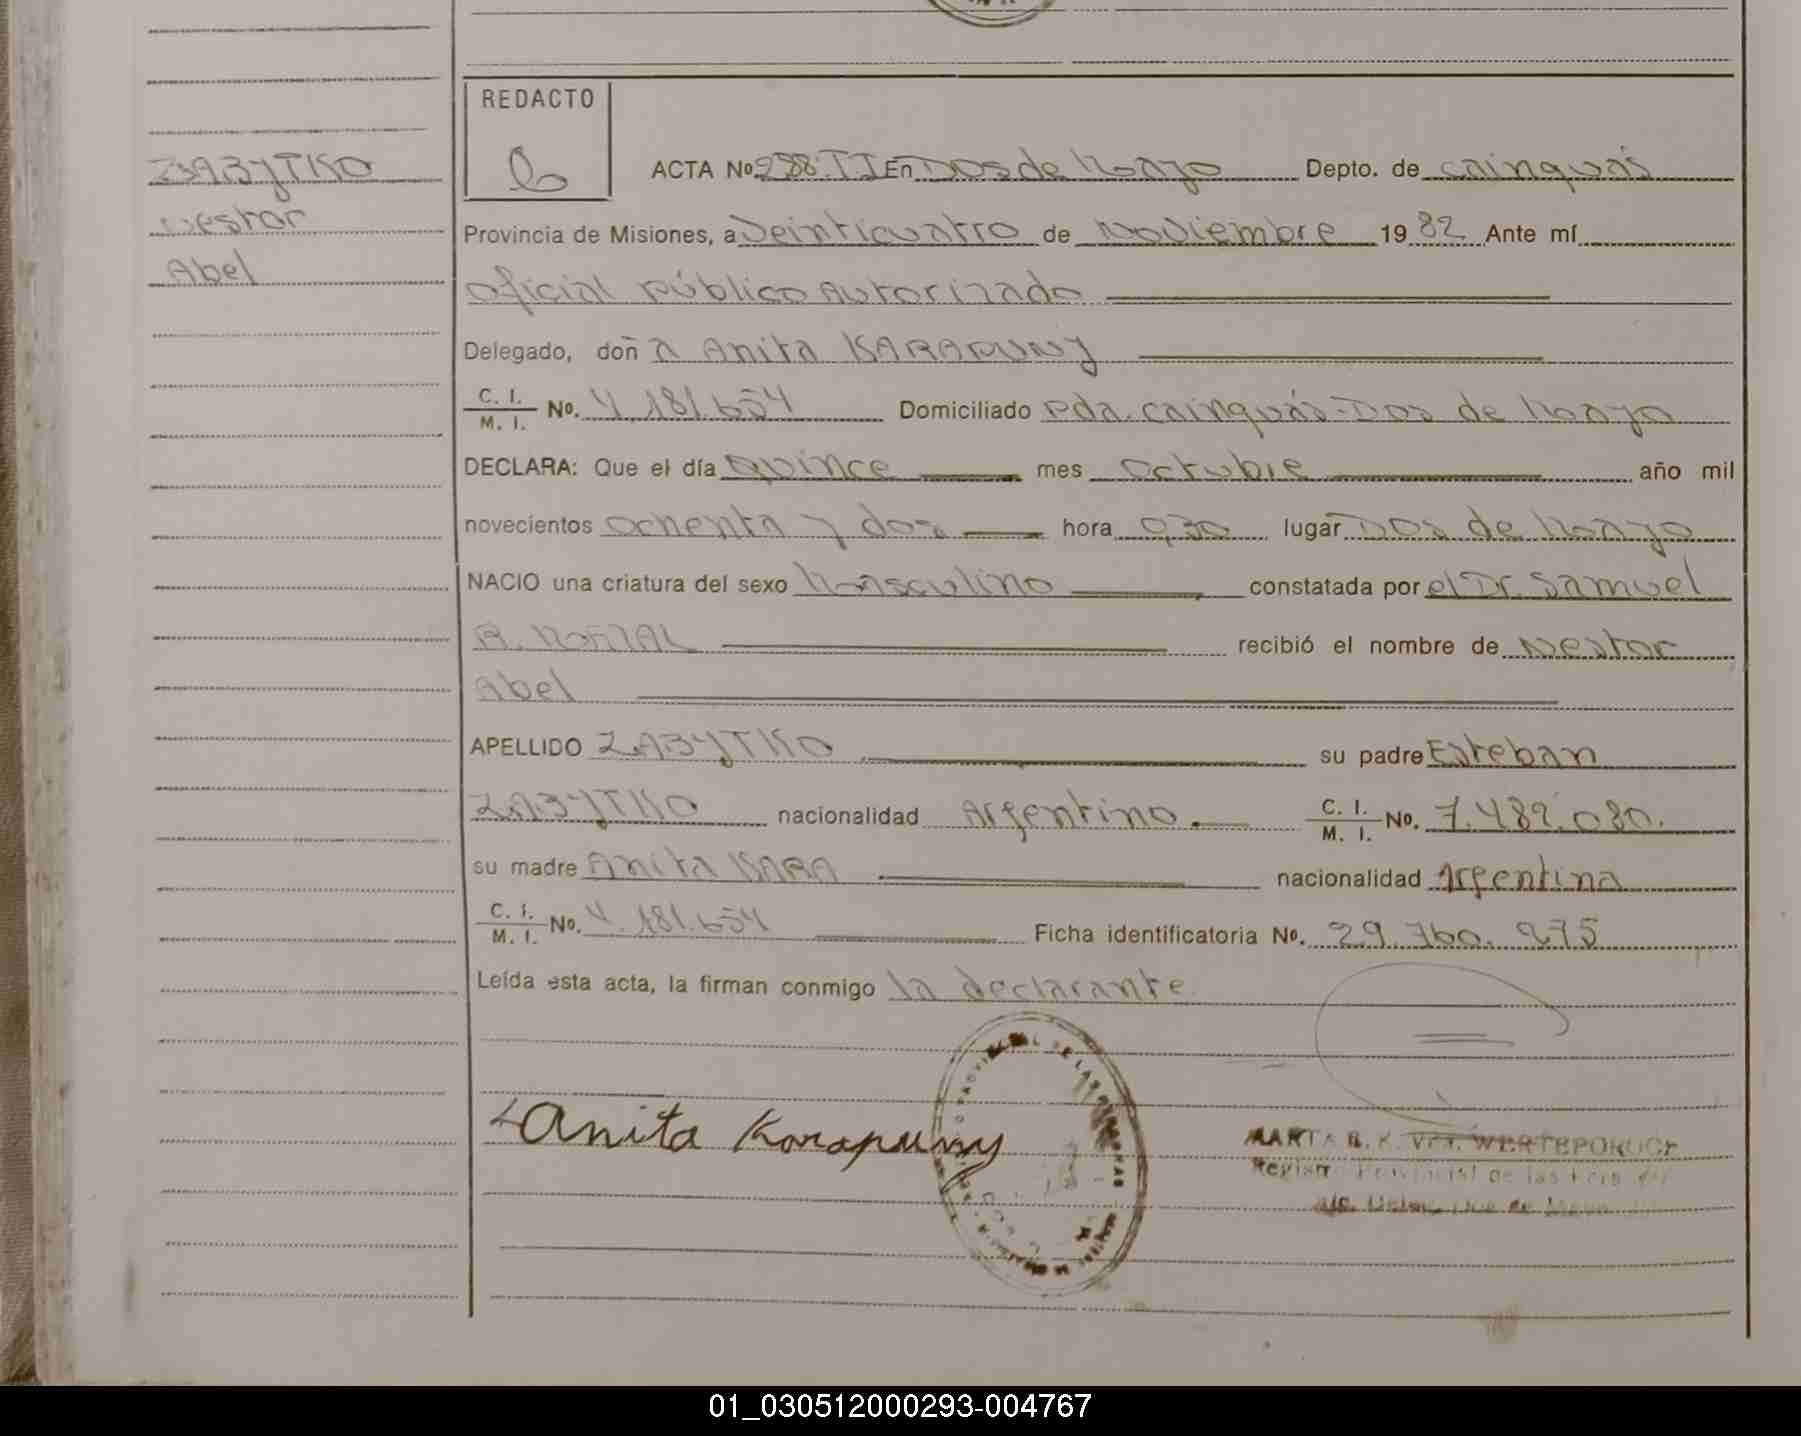 ZABYTKO
Nestor
Abel
REDACTO
ACTA No 288. TI En Dos de Mayo Depto. de Cainguás
Provincia de Misiones, a Veinticuatro de Noviembre 1982 Ante mí
Oficial Público Autorizado
Delegado, doña Anita KARAPUNY
C. I. / M. I. No. 4.181.654 Domiciliado Pda. Cainguás-Dos de Mayo
DECLARA: Que el día Quince mes Octubre año mil
novecientos Ochenta y dos hora 0,30 lugar Dos de Mayo
NACIO una criatura del sexo Masculino constatada por el Dr. Samuel
A. recibió el nombre de Nestor
Abel
APELLIDO ZABYTKO su padre Esteban
ZABYTKO nacionalidad Argentino.- C. I. / M. I. No. 7.489.080.
su madre Anita KARA nacionalidad Argentina
C. I. / M. I. No. 4.181.654 Ficha identificatoria No. 29.760.275
Leída esta acta, la firman conmigo la declarante.
Anita Karapuny
MARTA R. K. Vda.
Provincial de las
Dos de Mayo
01_030512000293-004767